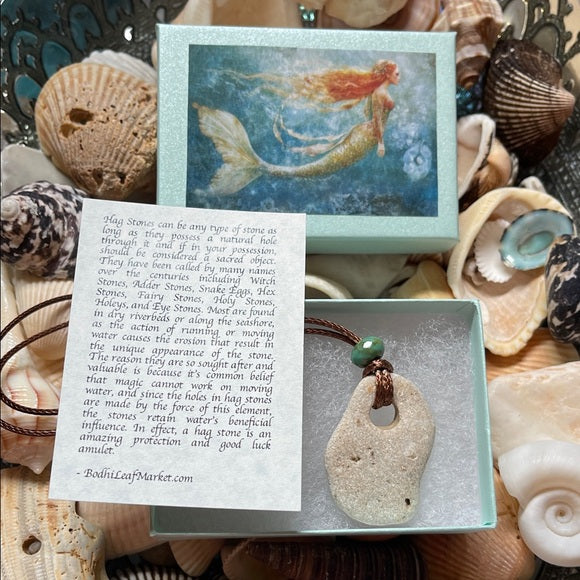 Hag Stones can be any type of stone as
long as they possess a natural hole
through it and if in your possession,
should be considered a sacred object.
They have been called by many names
over the centuries including Witch
Stones, Adder Stones, Snake Eggs, Hex
Stones, Fairy Stones, Holy Stones,
Holeys, and Eye Stones. Most are found
in dry riverbeds or along the seashore,
as the action of running or moving
water causes the erosion that result in
the unique appearance of the stone.
The reason they are so sought after and
valuable is because it's common belief
that magic cannot work on moving
water, and since the holes in hag stones
are made by the force of this element,
the stones retain water's beneficial
influence. In effect, a hag stone is an
amazing protection and good luck
amulet.
- BodhiLeafMarket.com